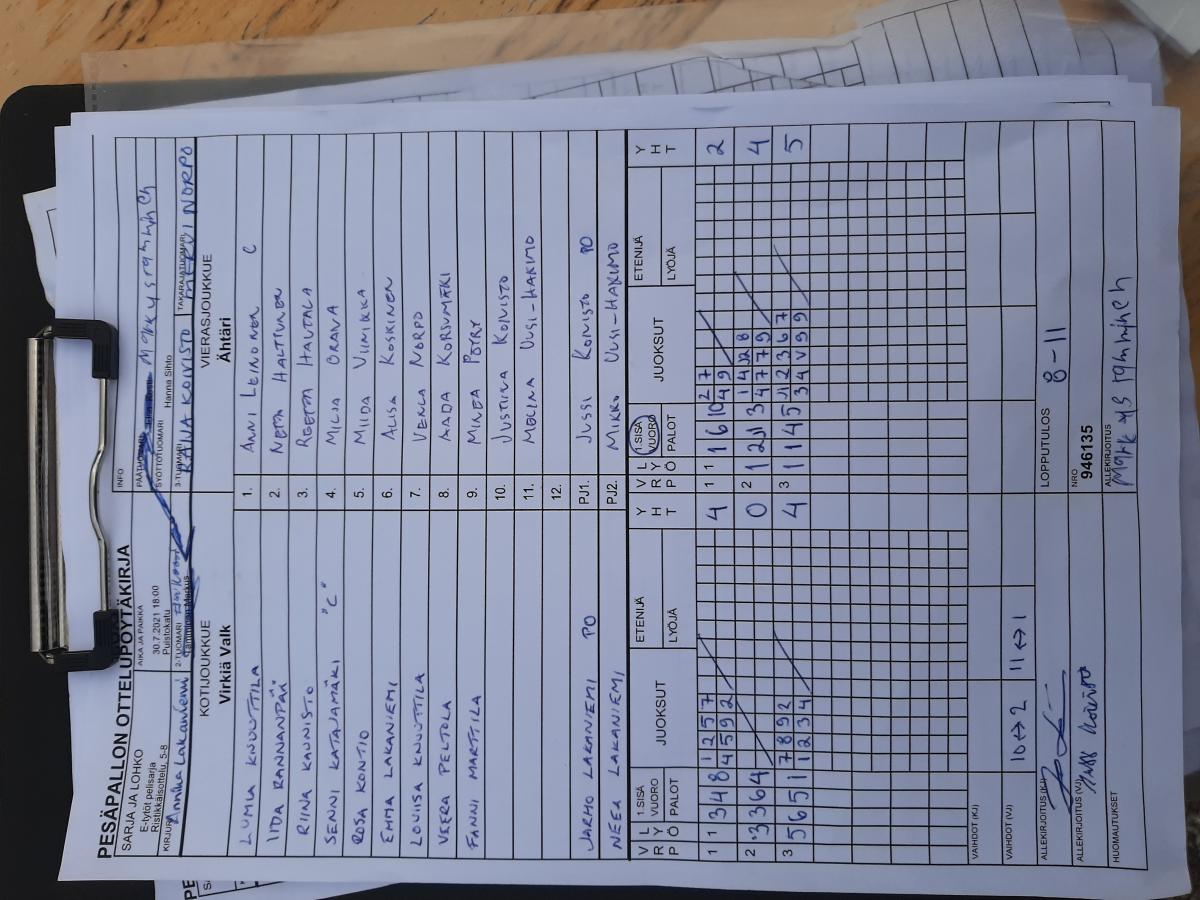 PESÄPALLON OTTELUPÖYTÄKIRJA
SARJA JA LOHKO
E-tytöt pelisarja
Ristikkäisottelu, 5-8
AIKA JA PAIKKA
30.7.2021 18:00
Puistokatu
INFO
PÄÄTUOMARI
SYÖTTÖTUOMARI Hanna Sihto
KIRJURI Annika Lakaniemi
2-TUOMARI
3-TUOMARI RAIJA KOIVISTO
TAKARAJATUOMARI MERVI NORPO
KOTIJOUKKUE
Virkiä Valk
VIERASJOUKKUE
Ähtäri
LUMIA KNUUTTILA 1. ANNI LEINONEN C
IIDA RANNANPÄÄ 2. NETTA HALTTUNEN
RIINA KAUNISTO 3. REETTA HAUTALA
SENNI KATAJAMÄKI "C" 4. MILJA ORAVA
ROSA KONTIO 5. MIIDA VIINIKKA
EMMA LAKANIEMI 6. ALISA KOSKINEN
LOVIISA KNUUTTILA 7. VENLA NORPO
VEERA PELTOLA 8. AADA KORSUMÄKI
FANNI MARTTILA 9. MINEA PÖYRY
10. JUSTIINA KOIVISTO
11. MELINA UUSI-HAKIMO
12.
JARMO LAKANIEMI PO PJ1. JUSSI KOIVISTO PO
NEEA LAKANIEMI PJ2. MIKKO UUSI-HAKIMO
V R P L Y Ö 1.SISÄ VUORO PALOT JUOKSUT ETENIJÄ LYÖJÄ Y H T V R P L Y Ö 1.SISÄ VUORO PALOT JUOKSUT ETENIJÄ LYÖJÄ Y H T
1 1 3 4 8 1 2 5 7 4 1 1 1 6 10 2 7 2
4 5 9 2 4 9
2 3 3 6 4 0 2 1 2 11 3 1 4 2 8 4
4 7 7 9
3 5 6 5 1 7 8 9 2 4 3 1 1 4 5 2 3 6 7 5
1 2 3 4 3 4 9 9
VAIHDOT (KJ)
VAIHDOT (VJ) 10↔2 11↔1
ALLEKIRJOITUS (KJ)
LOPPUTULOS 8-11
ALLEKIRJOITUS (VJ) Jussi Koivisto
NRO
946135
HUOMAUTUKSET
ALLEKIRJOITUS